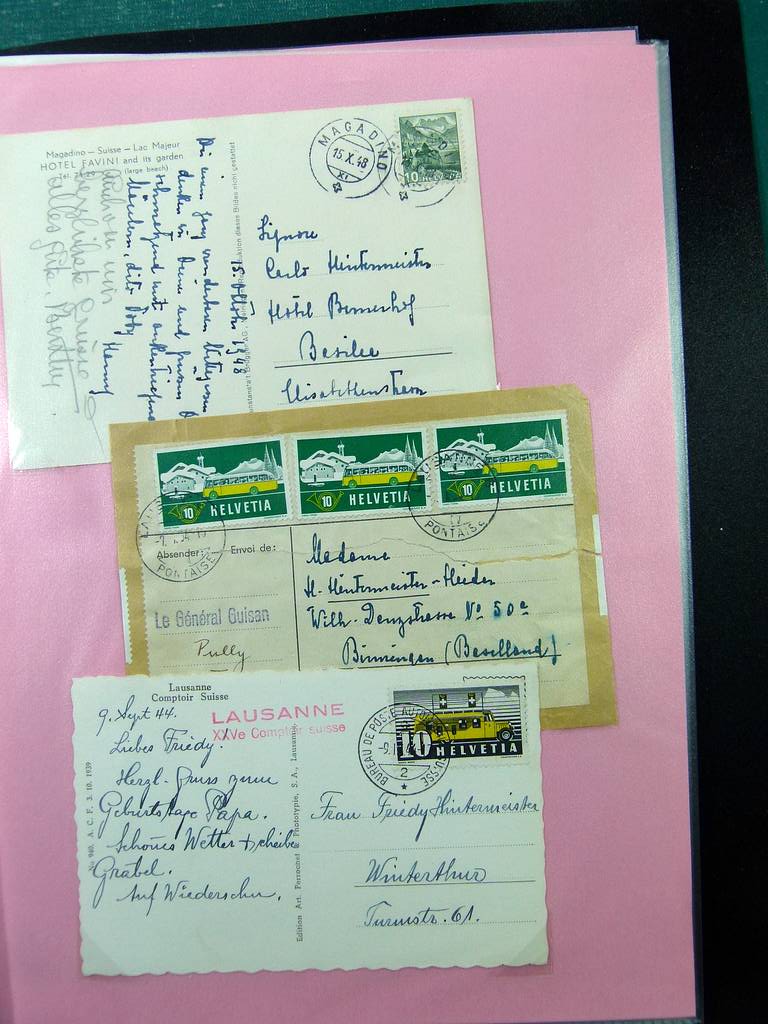 Magadino – Suisse – Lac Majeur
HOTEL FAVINI and its garden
(large beach)
MAGADINO
15.X.48
XI
10 HELVETIA
15. Oktober 1948
Henny
herzlichste Grüsse
alles Gute,
Signore
Carlo Hintermeister
Hotel Bernerhof
Basilea
Elisabethenstrasse
10 HELVETIA
10 HELVETIA
10 HELVETIA
LAUSANNE
PONTAISE
LAUSANNE
17
PONTAISE
Absender:
Envoi de:
Le Général Guisan
Pully
Madame
H. Hintermeister-Heider
Wilh. Denzstrasse No 50a
Binningen (Baselland)
Lausanne
Comptoir Suisse
9. Sept 44.
LAUSANNE
XXVe Comptoir suisse
Liebes Friedy.
Herzl. Gruss zum
Geburtstage Papa.
Schönes Wetter
Grabel.
Auf Wiedersehn.
No 940. A. C. F. 3. 10. 1939
Edition Art. Perrochet & Phototypie, S. A., Lausanne
BUREAU DE POSTE AUTOMOBILE SUISSE
2
10 HELVETIA
Frau Friedy Hintermeister
Winterthur
Turmstr. 61.